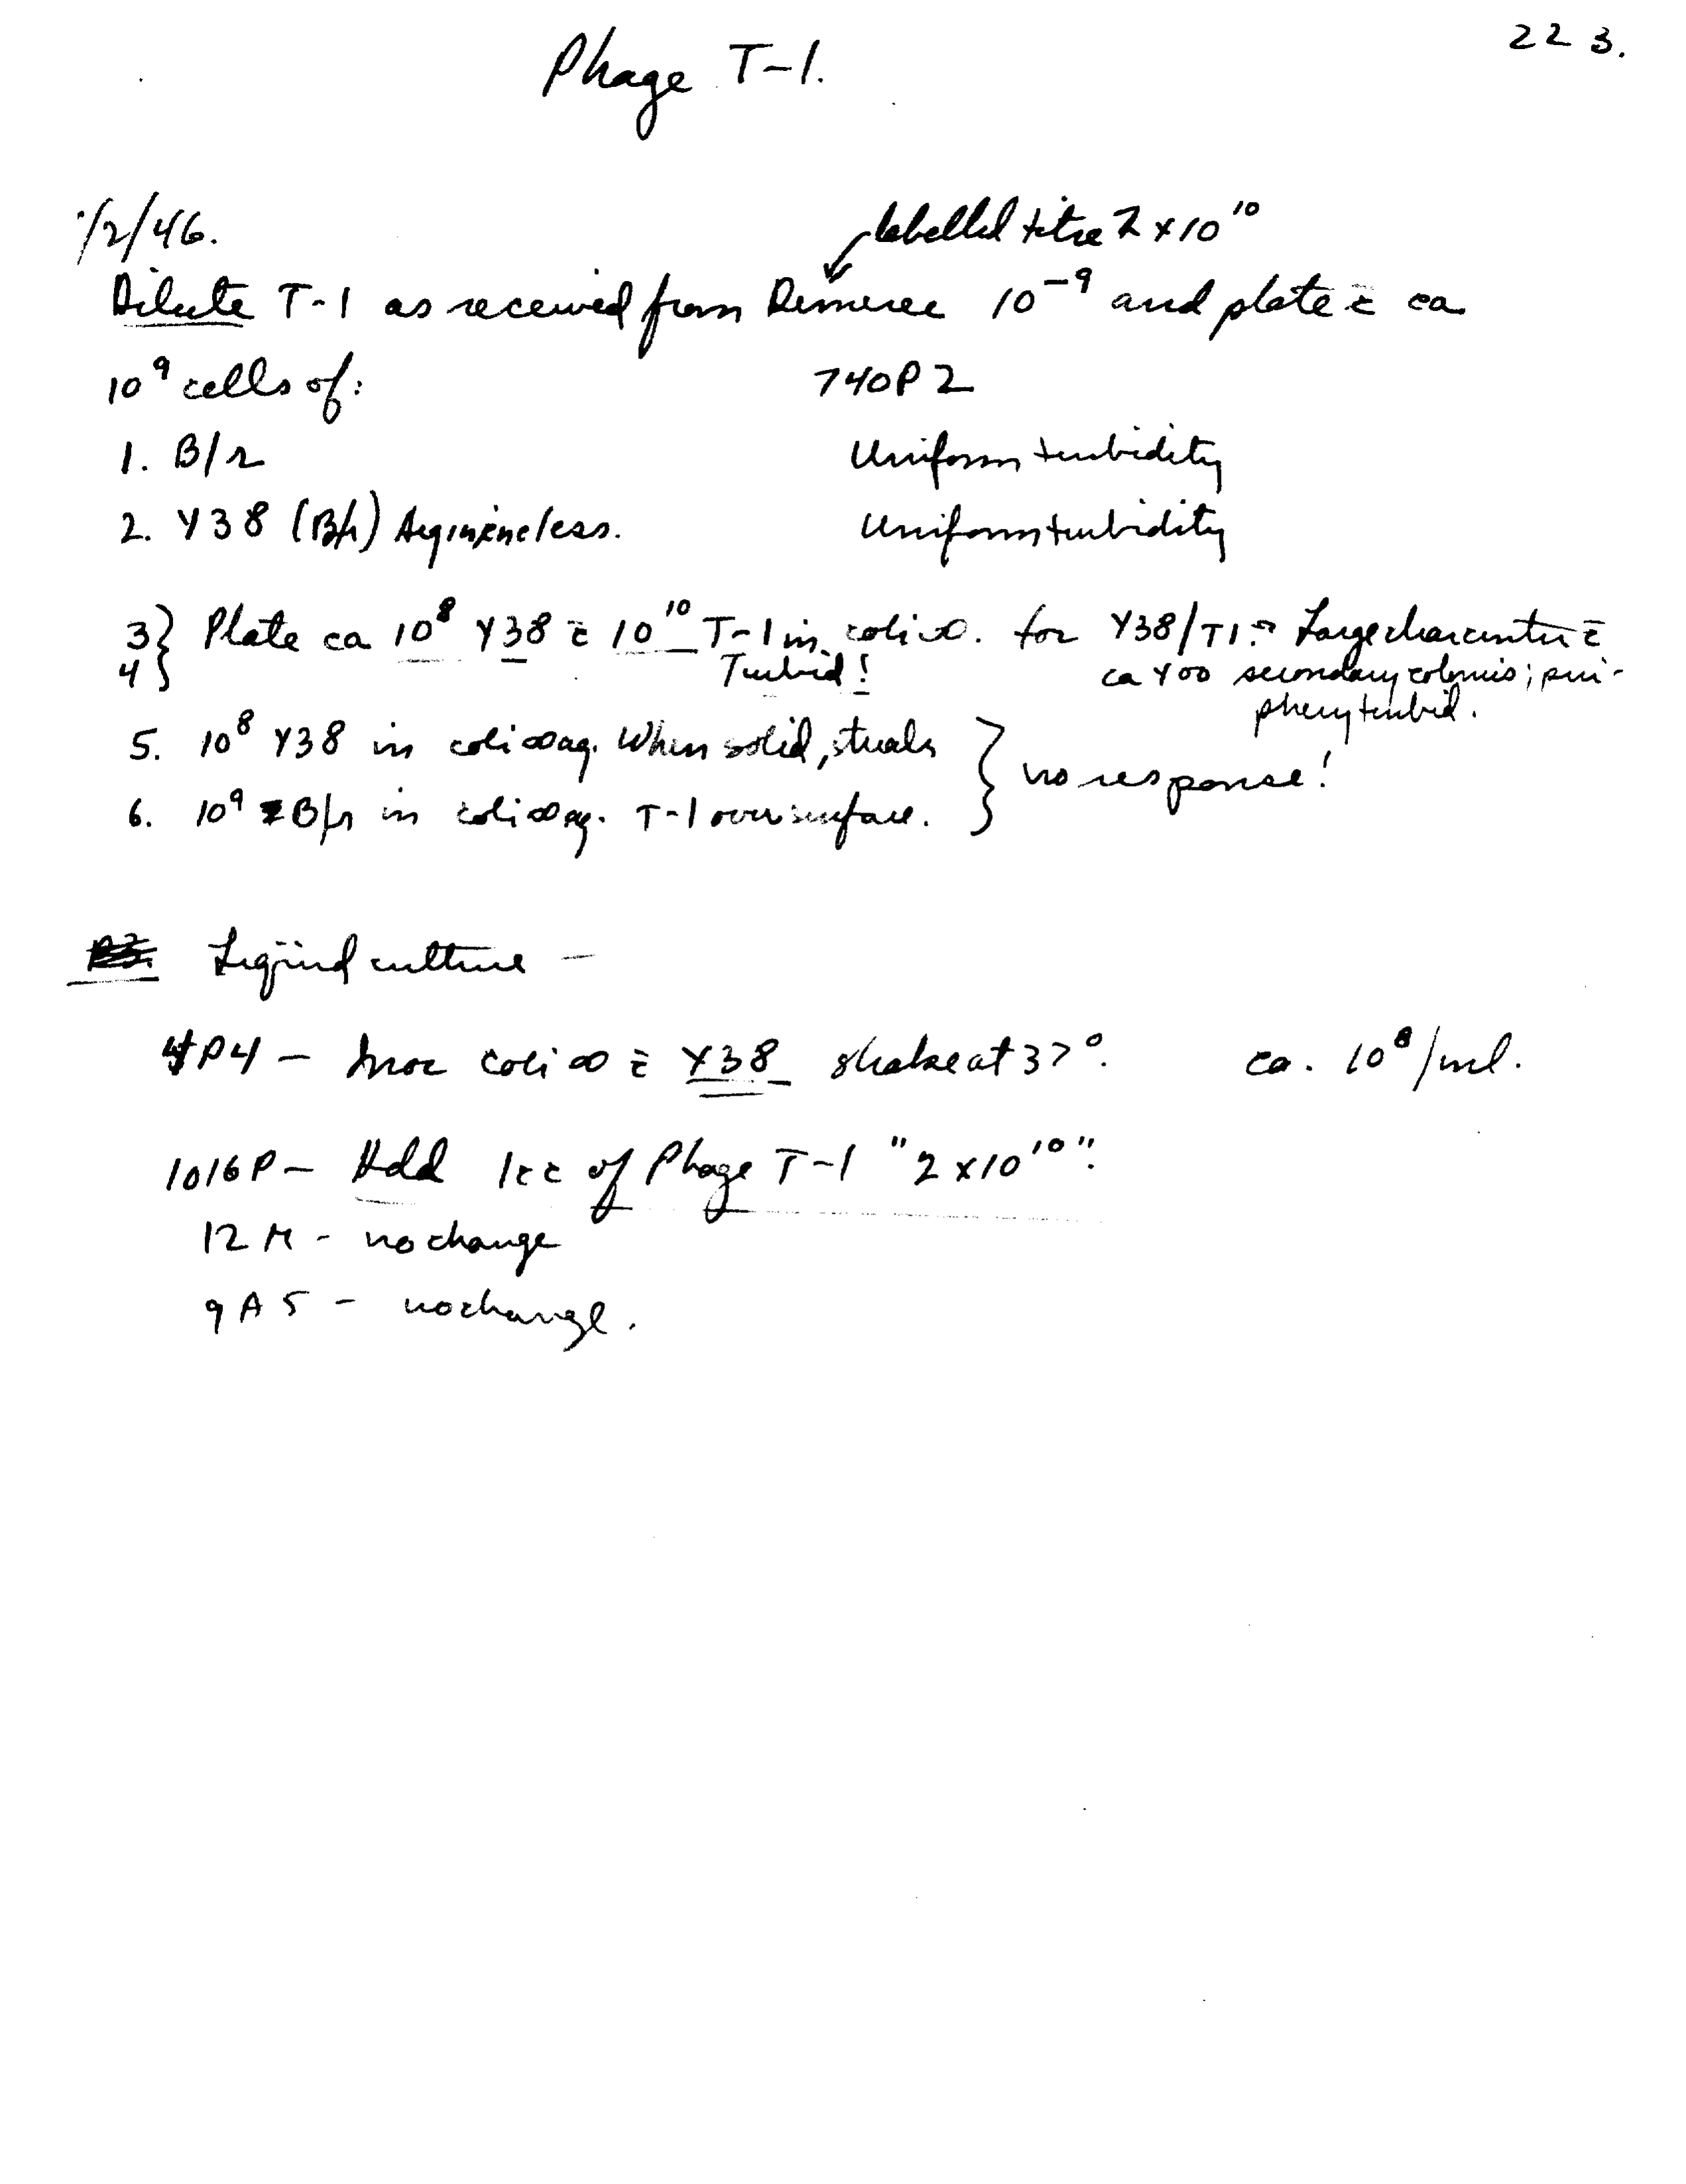 223.
Phage T-1.
1/2/46.
labelled titre 2 x 10¹⁰
Dilute T-1 as received from Demerec 10⁻⁹ and plate c̄ ca
10⁹ cells of: 740P2
1. B/r Uniform turbidity
2. Y38 (B/r) Arginineless. Uniform turbidity
3} Plate ca 10⁸ Y38 c̄ 10¹⁰ T-1 in coli ∞. for Y38/T1. Large clear center c̄
4} Turbid! ca 400 secondary colonies; peri-
phery turbid.
5. 10⁸ Y38 in coli ∞ ag. When solid, streak
6. 10⁹ B/r in coli ∞ ag. T-1 over surface. } no response!
Liquid culture –
4P4 – Inoc coli ∞ c̄ Y38 shake at 37°. ca. 10⁸/ml.
1016P – Add 1cc of Phage T-1 "2 x 10¹⁰".
12M – no change
9A5 – no change.